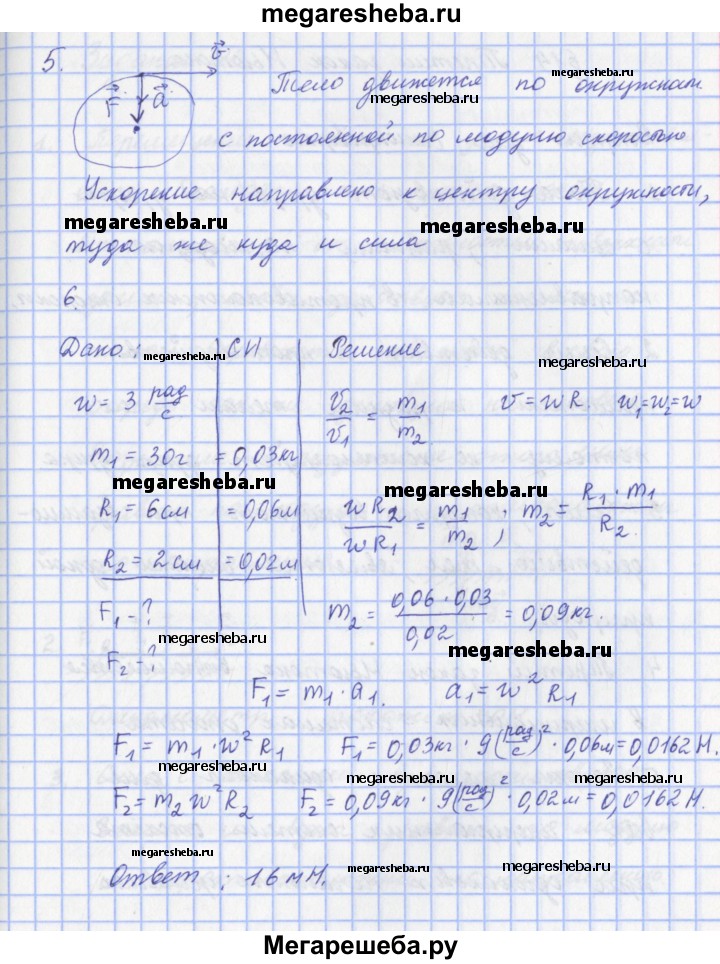 megaresheba.ru
5. v⃗
F⃗ a⃗ Тело движется по окружнам
megaresheba.ru
megaresheba.ru
с постоянной по модулю скоростью
Ускорение направлено к центру окружности,
megaresheba.ru megaresheba.ru
туда же куда и сила
6.
Дано: megaresheba.ru СИ Решение megaresheba.ru
w = 3 рад/с
v₂/v₁ = m₁/m₂ v = wR. w₁=w₂=w
m₁ = 30г = 0,03кг
megaresheba.ru megaresheba.ru
R₁ = 6см = 0,06м wR₂/wR₁ = m₁/m₂; m₂ = R₁·m₁/R₂.
R₂ = 2см = 0,02м
F₁ - ? m₂ = 0,06·0,03/0,02 = 0,09кг.
megaresheba.ru megaresheba.ru
F₂ - ?
F₁ = m₁·a₁. a₁ = w²R₁
megaresheba.ru
F₁ = m₁·w²R₁ F₁ = 0,03кг·9(рад/с)²·0,06м=0,0162Н.
megaresheba.ru megaresheba.ru megaresheba.ru
F₂ = m₂w²R₂ F₂ = 0,09кг·9(рад/с)²·0,02м=0,0162Н.
megaresheba.ru megaresheba.ru
Ответ: 16мН.
megaresheba.ru
Мегарешеба.ру